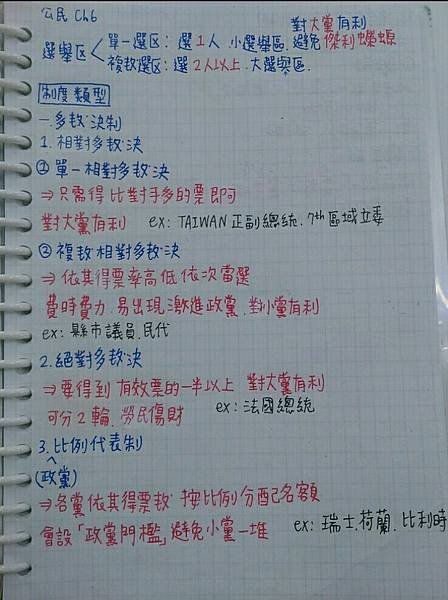 公民 Ch6
對大黨有利
選舉区 < 單一選区：選1人.小選舉區.避免傑利蠑螈
複數選区：選2人以上.大選舉区.
制度類型
一.多數決制
1.相對多數決
①單一相對多數決
⇒只需得比對手多的票即可
對大黨有利 ex: TAIWAN正副總統.7th區域立委
②複數相對多數決
⇒依其得票率高低依次當選
費時費力.易出現激進政黨.對小黨有利
ex: 縣市議員.民代
2.絕對多數決
⇒要得到有效票的一半以上 對大黨有利
可分2輪.勞民傷財 ex: 法國總統
3.比例代表制
(政黨)
⇒各黨依其得票數 按比例分配名額
會設「政黨門檻」避免小黨一堆 ex: 瑞士.荷蘭.比利時